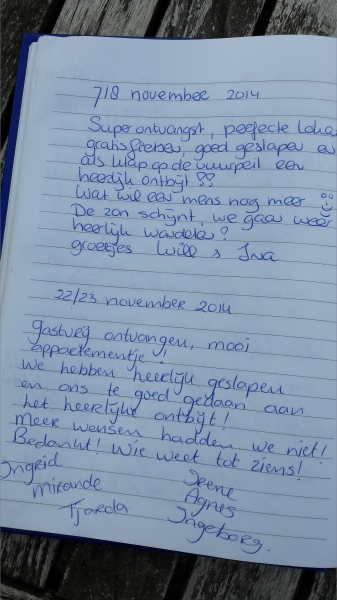 7/8 november 2014
Super ontvangst, perfecte
gratis fietsen, goed geslapen en
als klap op de vuurpijl een
heerlijk ontbijt !!
Wat wil een mens nog meer
De zon schijnt, we gaan weer
heerlijk wandelen!
groetjes Will & Ina
22/23 november 2014
gastvrij ontvangen, mooi
appartementje!
We hebben heerlijk geslapen
en ons te goed gedaan aan
het heerlijke ontbijt!
Meer wensen hadden we niet!
Bedankt! Wie weet tot ziens!
Ingrid Irene
Mirande Agnes
Tjarda Ingeborg.